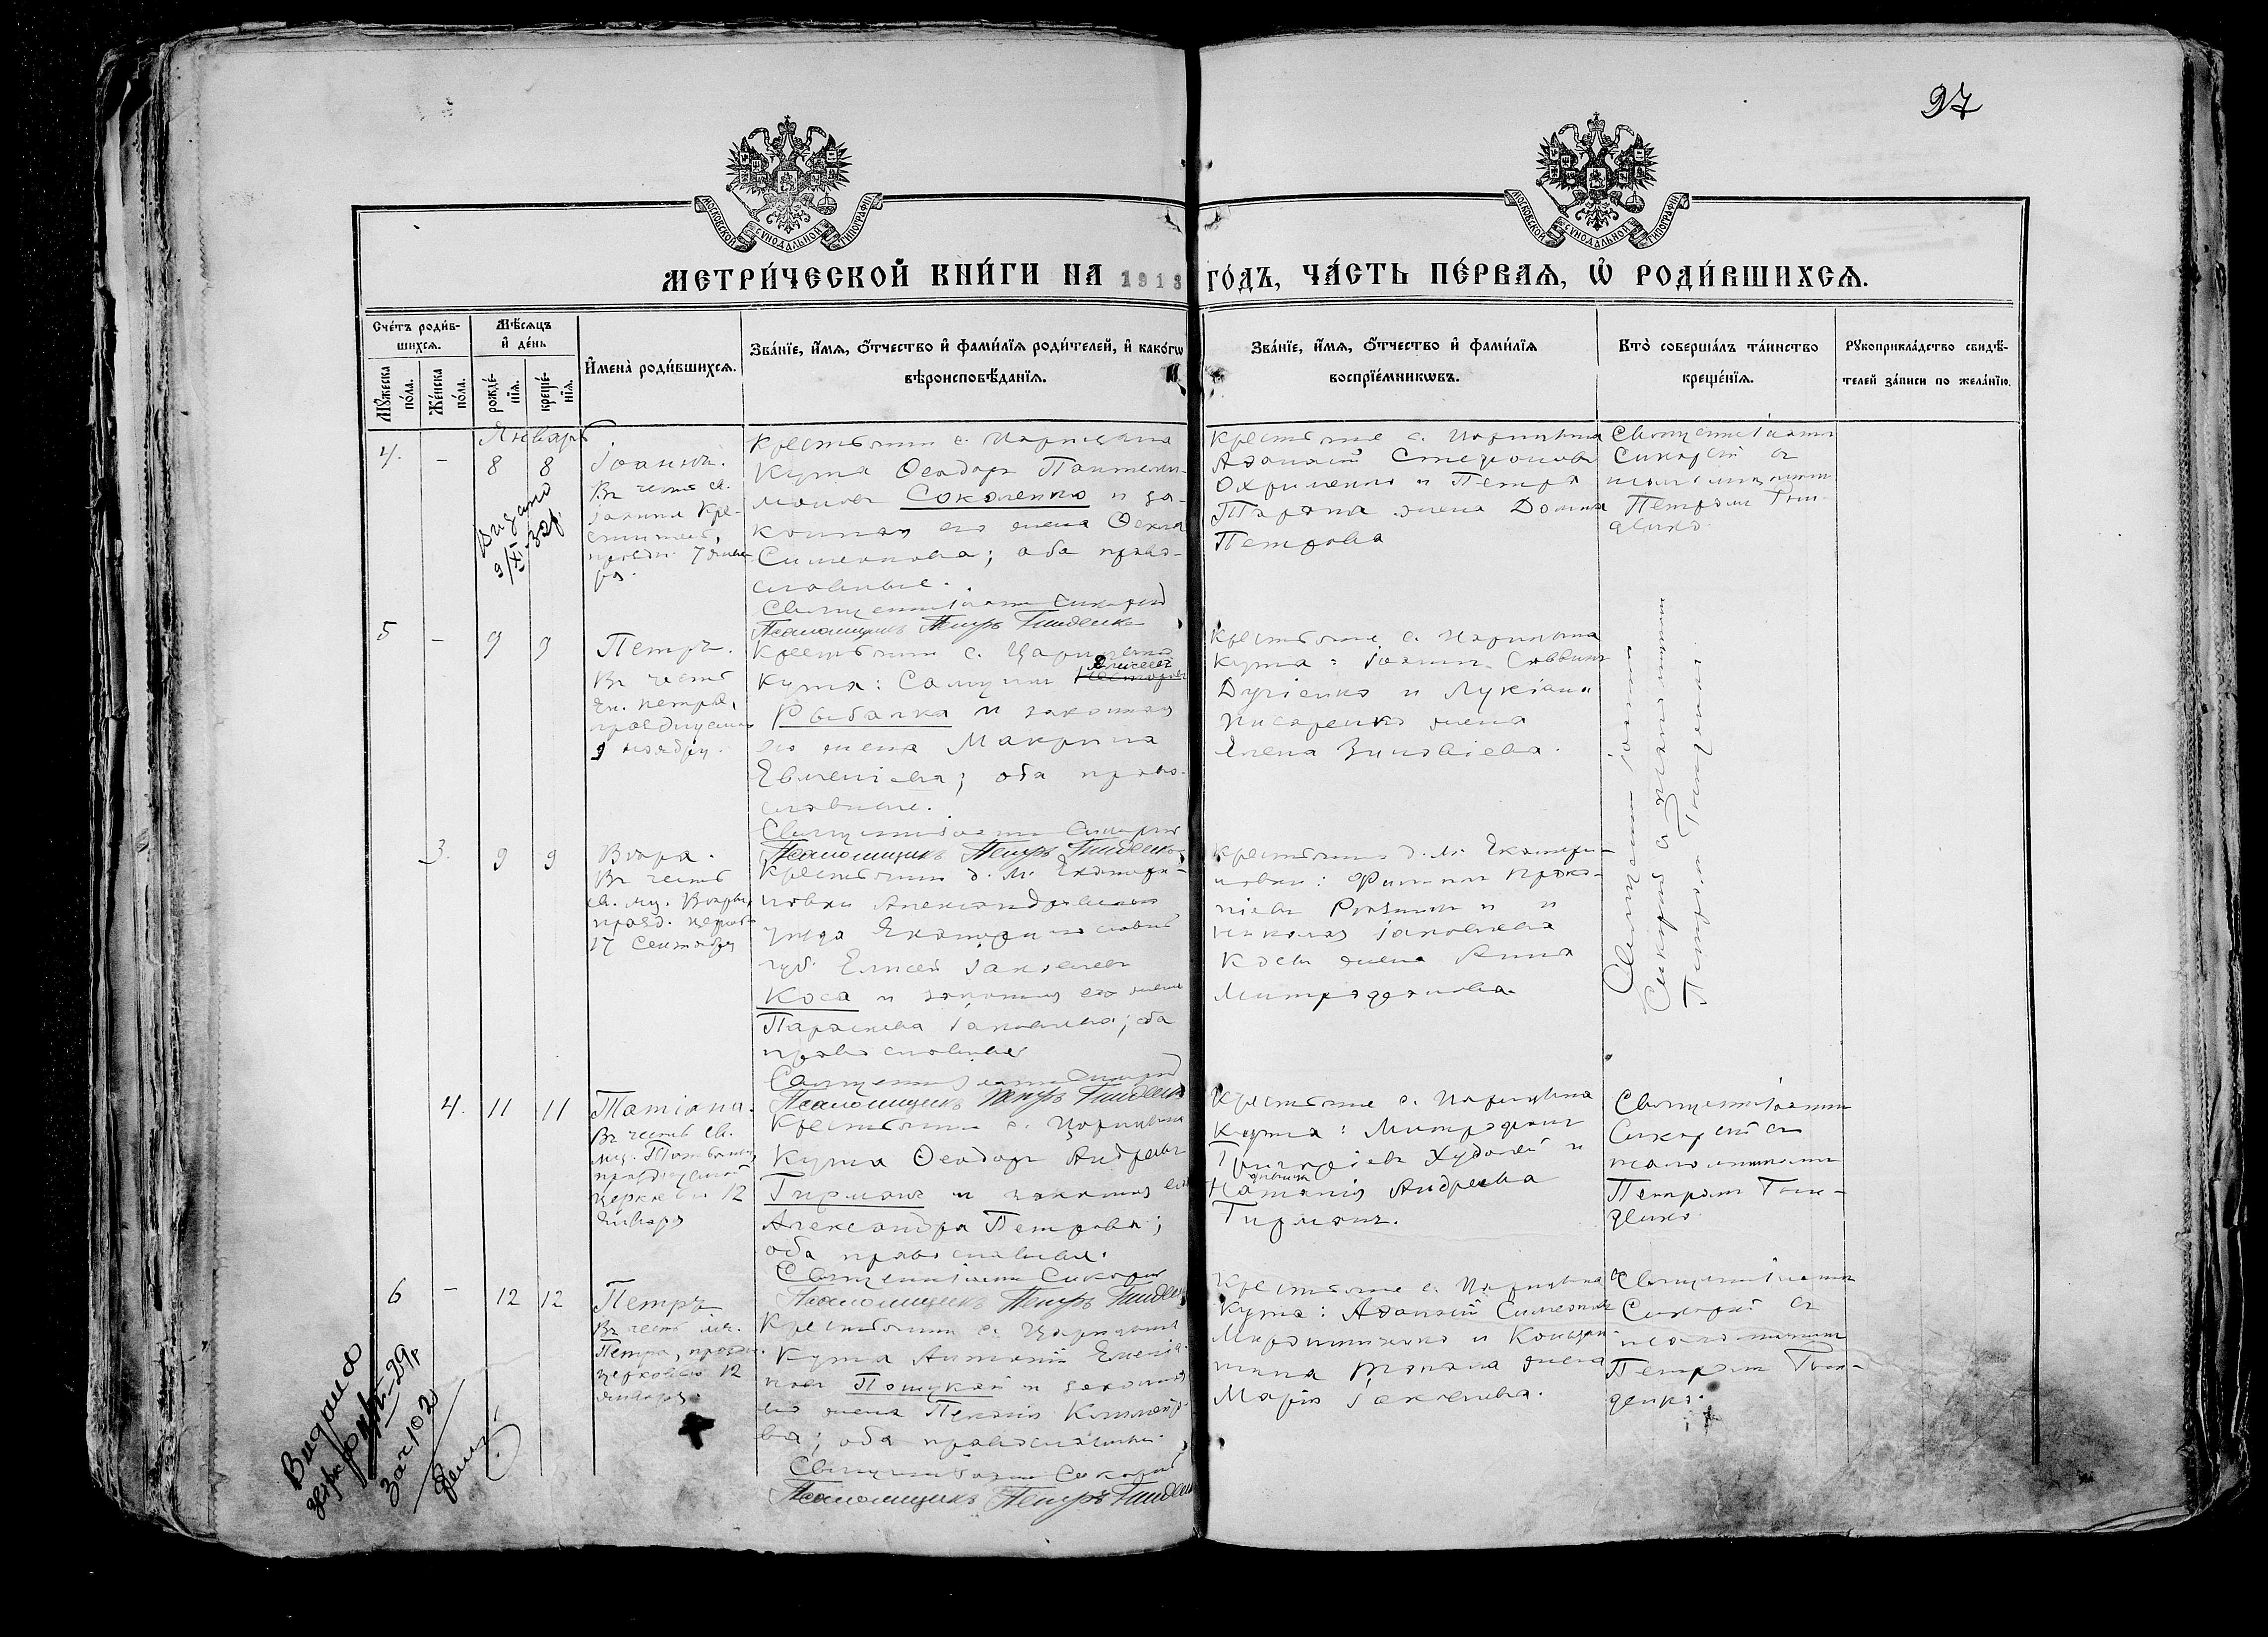 97
МОСКОВСКОЙ СѴНОДАЛЬНОЙ ТИПОГРАФІИ
МОСКОВСКОЙ СѴНОДАЛЬНОЙ ТИПОГРАФІИ
МЕТРИ́ЧЕСКОЙ КНИ́ГИ НА 1913 ГО́ДЪ, ЧА́СТЬ ПЕ́РВАѦ, Ѡ҆ РОДИ́ВШИХСѦ.
Сче́тъ роди́в-
шихсѧ.
Мѣ́сѧцъ
и҆ де́нь
Мꙋ́жеска
по́ла.
Же́нска
по́ла.
рожде́-
нїѧ.
креще́-
нїѧ.
И҆мена̀ роди́вшихсѧ.
Зва́нїе, и҆́мѧ, ѻ҆́тчество и҆ фами́лїѧ роди́телей, и҆ како́гѡ
вѣроисповѣ́данїѧ.
Зва́нїе, и҆́мѧ, ѻ҆́тчество и҆ фами́лїѧ
воспрїе́мникѡвъ.
Кто̀ соверша́лъ та́инство
креще́нїѧ.
Рꙋкоприкла́дство свидѣ́-
телей за́писи по жела́нїю.
Январь
4. - 8 8
Іоаннъ.
Въ честь св.
Іоанна Кре-
стителя,
7 янва-
ря.
Видано
9/XI 32р.
Крестьянин с. Царицына
Кута Ѳеодоръ Пантелеи-
моновъ Соколенко и за-
конная его жена Ѳекла
Симеонова; оба право-
славные.
Священникъ Іоаннъ Сикорскій
Псаломщикъ Петръ Гнидєнко
Крестьяне с. Царицына
Аѳанасій Стефановъ
Охрименко и Петра
жена Домна
Петрова
Священникъ Іоаннъ
Сикорскій съ
псаломщикомъ
Петромъ Гни-
денко
5 - 9 9
Петръ.
Въ честь
Петра,
празднуемаго
9 ноября.
Крестьянин с. Царицына
Кута: Самуилъ Елисеевъ
Рыбалка и законная
его жена Макрина
Евменіева; оба право-
славные.
Священникъ Іоаннъ Сикорскій
Псаломщикъ Петръ Гниденко
Крестьяне с. Царицына
Кута: Іоаннъ Саввинъ
Дугіенко и Лукіана
Писаренко жена
Елена Зиновіева.
Священникъ Іоаннъ
Сикорскій съ псаломщикомъ
Петромъ Гниденко.
3. 9 9
Вѣра.
Въ честь
св. муч. Вѣры,
празд. церков.
17 Сентября
Крестьянин д. М. Екатери-
новки Александровскаго
уѣзда Екатеринославской
губ. Елисей Іаковлевъ
Коса и законная его жена
Параскева Іаковлева; оба
православные
Священникъ Іоаннъ Сикорскій
Псаломщикъ Петръ Гниденко
Крестьяне д. М. Екатери-
новки: Филиппъ Проко-
піевъ и
Николая Іаковлева
Косы жена Анна
Митрофанова.
4. 11 11
Татіана.
Въ честь св.
муч. Татіаны,
празднуемой
церковью 12
Января
Крестьянин с. Царицына
Кута Ѳеодоръ Андреевъ
Гирманъ и законная его
Александра Петрова;
оба православные.
Священникъ Іоаннъ Сикорскій
Псаломщикъ Петръ Гниденко
Крестьяне с. Царицына
Кута: Митрофанъ
Григоріевъ Худолей и
девица
Наталія Андреева
Гирманъ.
Священникъ Іоаннъ
Сикорскій съ
псаломщикомъ
Петромъ Гни-
денко
6 - 12 12
Петръ
Въ честь муч.
Петра, праздн.
церковью 12
января.
Крестьянин с. Царицына
Кута Антоній
и законная
его жена Пелагія
оба православные.
Священникъ Іоаннъ Сикорскій
Псаломщикъ Петръ Гниденко
Крестьяне с. Царицына
Кута: Аѳанасій Симеоновъ
Мирошниченко и Констан-
тина жена
Марія Іаковлева.
Священникъ Іоаннъ
Сикорскій съ
псаломщикомъ
Петромъ Гни-
денко.
Видана
29р
За № 102